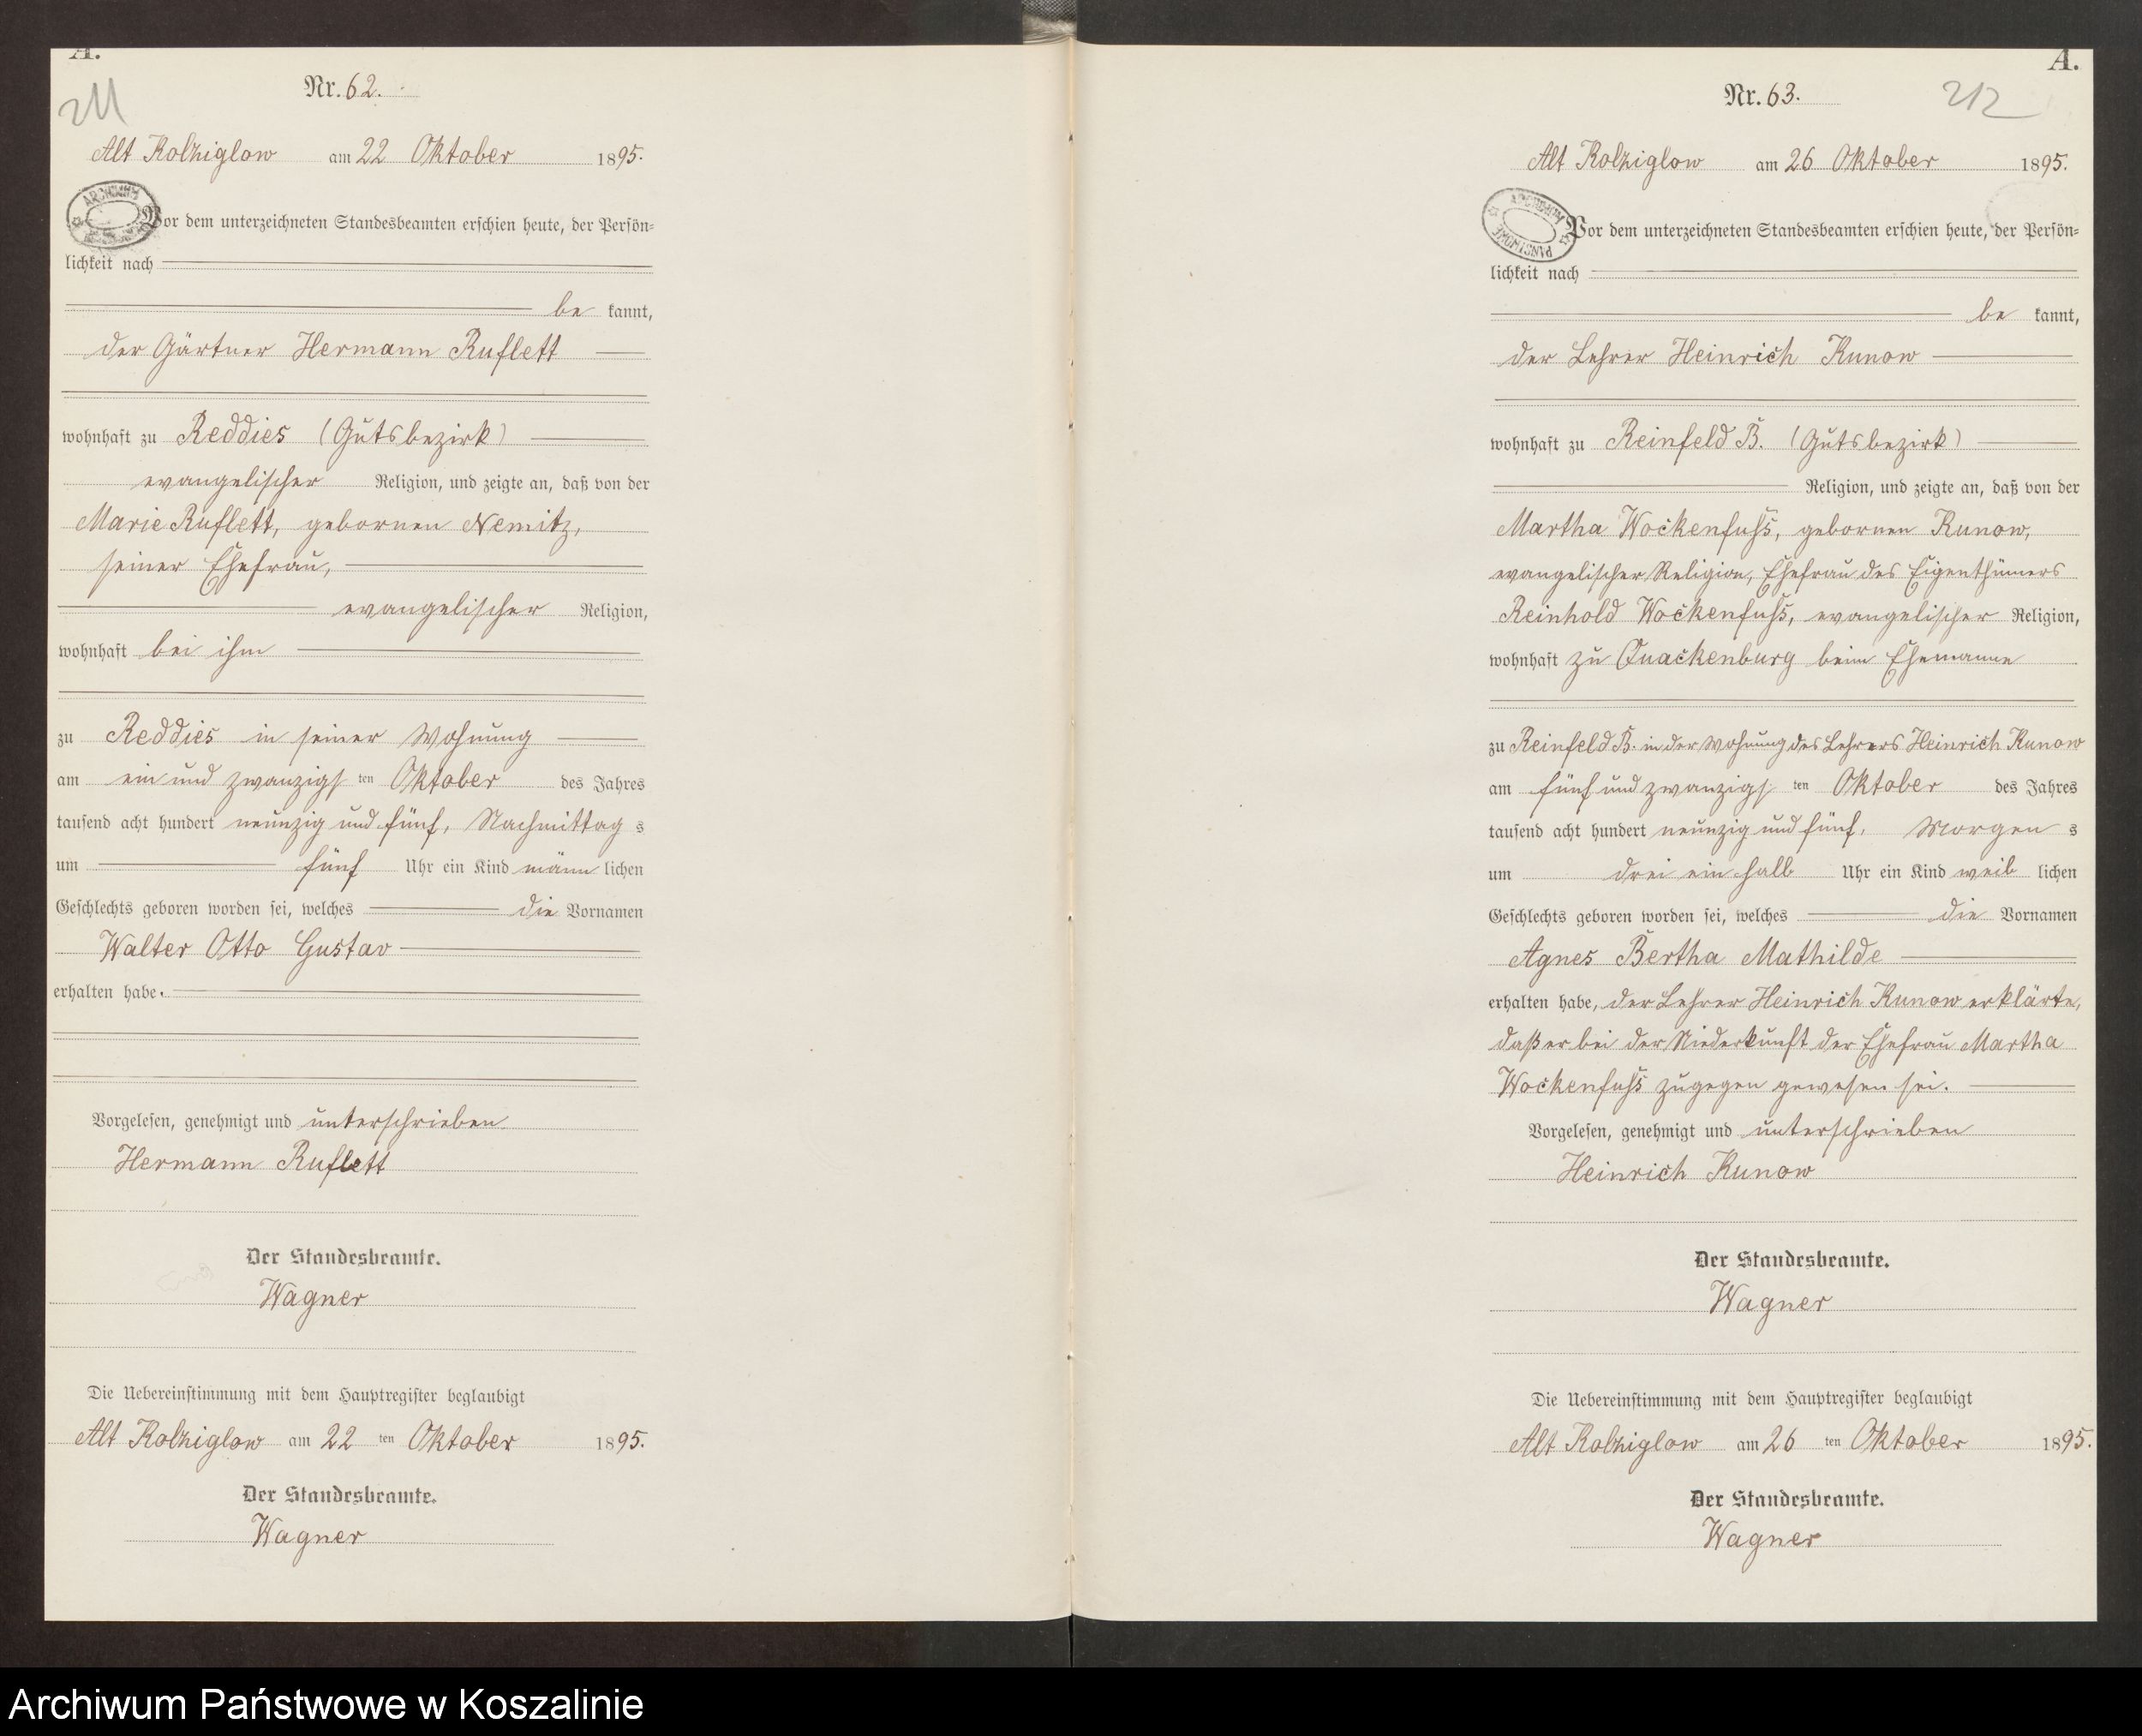 A.
211
Nr. 62.
Alt Kolziglow am 22 Oktober 1895.
ARCHIWUM
Vor dem unterzeichneten Standesbeamten erschien heute, der Persön=
lichkeit nach
be kannt,
der Gärtner Hermann Ruflett
wohnhaft zu Reddies (Gutsbezirk)
evangelischer Religion, und zeigte an, daß von der
Marie Ruflett, gebornen Nemitz,
seiner Ehefrau,
evangelischer Religion,
wohnhaft bei ihm
zu Reddies in seiner Wohnung
am ein und zwanzigs ten Oktober des Jahres
tausend acht hundert neunzig und fünf, Nachmittag s
um fünf Uhr ein Kind männ lichen
Geschlechts geboren worden sei, welches die Vornamen
Walter Otto Gustav
erhalten habe.
Vorgelesen, genehmigt und unterschrieben
Hermann Ruflett
Der Standesbeamte.
Wagner
Die Uebereinstimmung mit dem Hauptregister beglaubigt
Alt Kolziglow am 22 ten Oktober 1895.
Der Standesbeamte.
Wagner
A.
212
Nr. 63.
Alt Kolziglow am 26 Oktober 1895.
PANSTWOWE
Vor dem unterzeichneten Standesbeamten erschien heute, der Persön=
lichkeit nach
be kannt,
der Lehrer Heinrich Kunow
wohnhaft zu Reinfeld B. (Gutsbezirk)
Religion, und zeigte an, daß von der
Martha Wockenfuss, gebornen Kunow,
evangelischer Religion, Ehefrau des Eigenthümers
Reinhold Wockenfuss, evangelischer Religion,
wohnhaft zu Quackenburg beim Ehemanne
zu Reinfeld B. in der Wohnung des Lehrers Heinrich Kunow
am fünf und zwanzigs ten Oktober des Jahres
tausend acht hundert neunzig und fünf, Morgen s
um drei ein halb Uhr ein Kind weib lichen
Geschlechts geboren worden sei, welches die Vornamen
Agnes Bertha Mathilde
erhalten habe, der Lehrer Heinrich Kunow erklärte,
daß er bei der Niederkunft der Ehefrau Martha
Wockenfuss zugegen gewesen sei.
Vorgelesen, genehmigt und unterschrieben
Heinrich Kunow
Der Standesbeamte.
Wagner
Die Uebereinstimmung mit dem Hauptregister beglaubigt
Alt Kolziglow am 26 ten Oktober 1895.
Der Standesbeamte.
Wagner
Archiwum Państwowe w Koszalinie